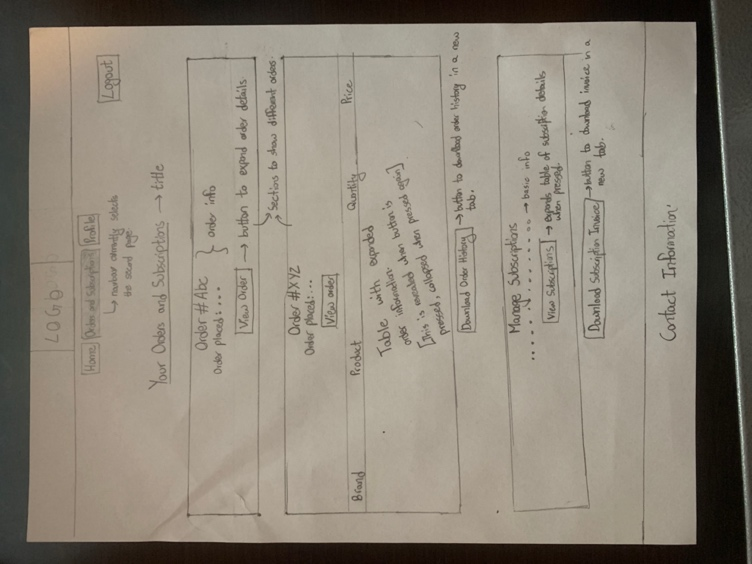 LOGO
Home Orders and Subscriptions Profile
Logout
↳ navbar currently selects
the second page.
Your Orders and Subscriptions → title
Order #Abc
Order placed: ....
} order info
View Order → button to expand order details
→ Sections to show different orders.
Order #XYZ
Order placed: ...
View order
Brand Product Quantity Price
Table with expanded
order information
[This is executed when button is
pressed, collapsed when pressed again]
Download Order History → button to download order history in a new
tab.
Manage Subscriptions
........ → basic info
View Subscriptions → expands table of subscription details
when pressed.
Download Subscription Invoice → button to download invoice in a
new tab.
Contact Information